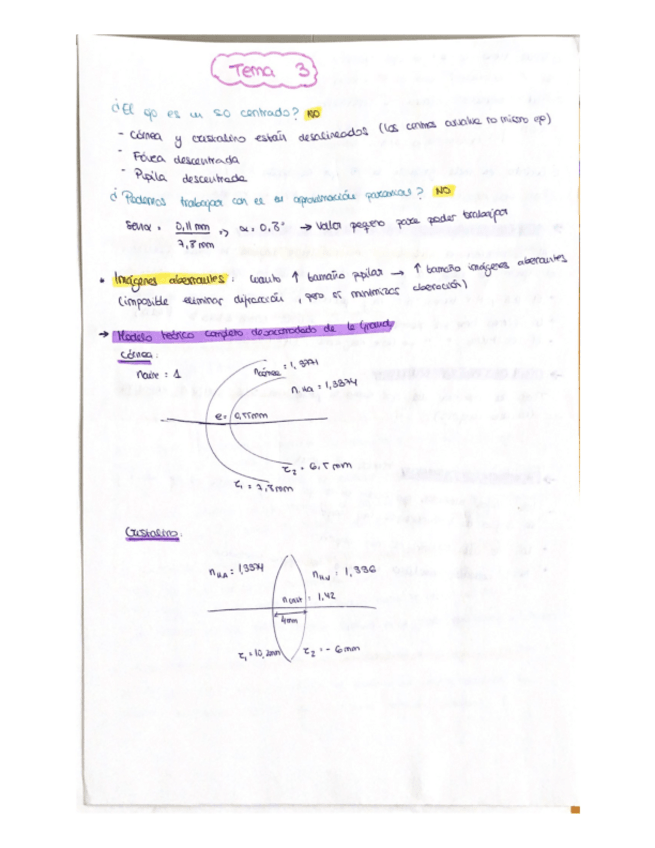 Tema 3
¿El ojo es un SO centrado? NO
- Córnea y cristalino están desalineados (los centros no mismo ojo)
- Fóvea descentrada
- Pupila descentrada
¿Podemos trabajar con en aproximación paraxial? NO
senα = 0,11 mm / 7,8 mm => α = 0,8° → valor pequeño para poder trabajar
• Imágenes aberrantes: cuanto ↑ tamaño pupilar → ↑ tamaño imágenes aberrantes
(imposible eliminar difracción, pero sí minimizar aberración)
→ Modelo teórico completo desacomodado de le Grand
córnea:
naire = 1
ncórnea = 1,3771
nHA = 1,3374
e = 0,55mm
r2 = 6,5 mm
r1 = 7,8 mm
Cristalino:
nHA = 1,3374
nHV = 1,336
ncrist = 1,42
4mm
r1 = 10,2mm
r2 = - 6 mm